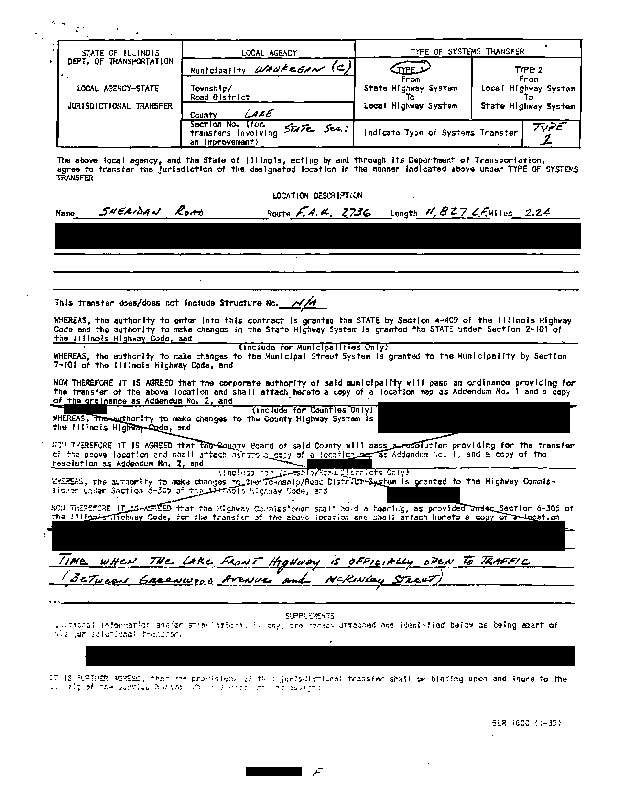 STATE OF ILLINOIS
DEPT. OF TRANSPORTATION
LOCAL AGENCY-STATE
JURISDICTIONAL TRANSFER
LOCAL AGENCY
Municipality WAUKEGAN (C)
Township/
Road District
County LAKE
Section No. (for
transfers involving STATE SEC:
an improvement)
TYPE OF SYSTEMS TRANSFER
TYPE 1
From
State Highway System
To
Local Highway System
TYPE 2
From
Local Highway System
To
State Highway System
Indicate Type of Systems Transfer TYPE
1
The above local agency, and the State of Illinois, acting by and through its Department of Transportation,
agree to transfer the jurisdiction of the designated location in the manner indicated above under TYPE OF SYSTEMS
TRANSFER
LOCATION DESCRIPTION
Name SHERIDAN ROAD Route F.A.U. 2736 Length 11,827 LF Miles 2.24
This transfer does/does not include Structure No. N/A
WHEREAS, the authority to enter into this contract is granted the STATE by Section 4-409 of the Illinois Highway
Code and the authority to make changes in the State Highway System is granted the STATE under Section 2-101 of
the Illinois Highway Code, and
(Include for Municipalities Only)
WHEREAS, the authority to make changes to the Municipal Street System is granted to the Municipality by Section
7-101 of the Illinois Highway Code, and
NOW THEREFORE IT IS AGREED that the corporate authority of said municipality will pass an ordinance providing for
the transfer of the above location and shall attach hereto a copy of a location map as Addendum No. 1 and a copy
of the ordinance as Addendum No. 2, and
(Include for Counties Only)
WHEREAS, the authority to make changes to the County Highway System is
the Illinois Highway Code, and
NOW THEREFORE IT IS AGREED that the County Board of said County will pass a resolution providing for the transfer
of the above location and shall attach hereto a copy of a location map as Addendum No. 1, and a copy of the
resolution as Addendum No. 2, and
(Include for Township/Road Districts Only)
WHEREAS, the authority to make changes to the Township/Road District System is granted to the Highway Commis-
sioner under Section 6-305 of the Illinois Highway Code, and
NOW THEREFORE IT IS AGREED that the Highway Commissioner shall hold a hearing, as provided under Section 6-305 of
the Illinois Highway Code, for the transfer of the above location and shall attach hereto a copy of a location
TIME WHEN THE LAKE FRONT HIGHWAY IS OFFICIALLY OPEN TO TRAFFIC
(BETWEEN GREENWOOD AVENUE and MCKINLEY STREET)
SUPPLEMENTS
information and/or
IT IS FURTHER AGREED, that the provisions of this jurisdictional transfer shall be binding upon and inure to the
BLR
F